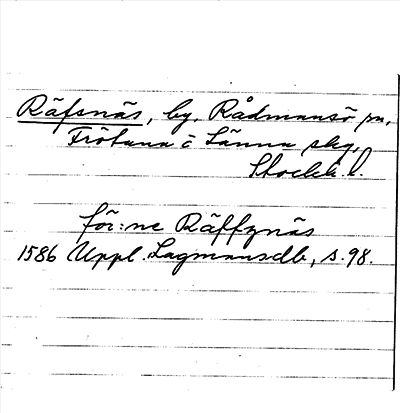 Räfsnäs, by, Rådmansö sn,
Frötuna o Länna skg,
Stockh. l.
för: ne Räffznäs
1586 Uppl. Lagmansdb, s. 98.